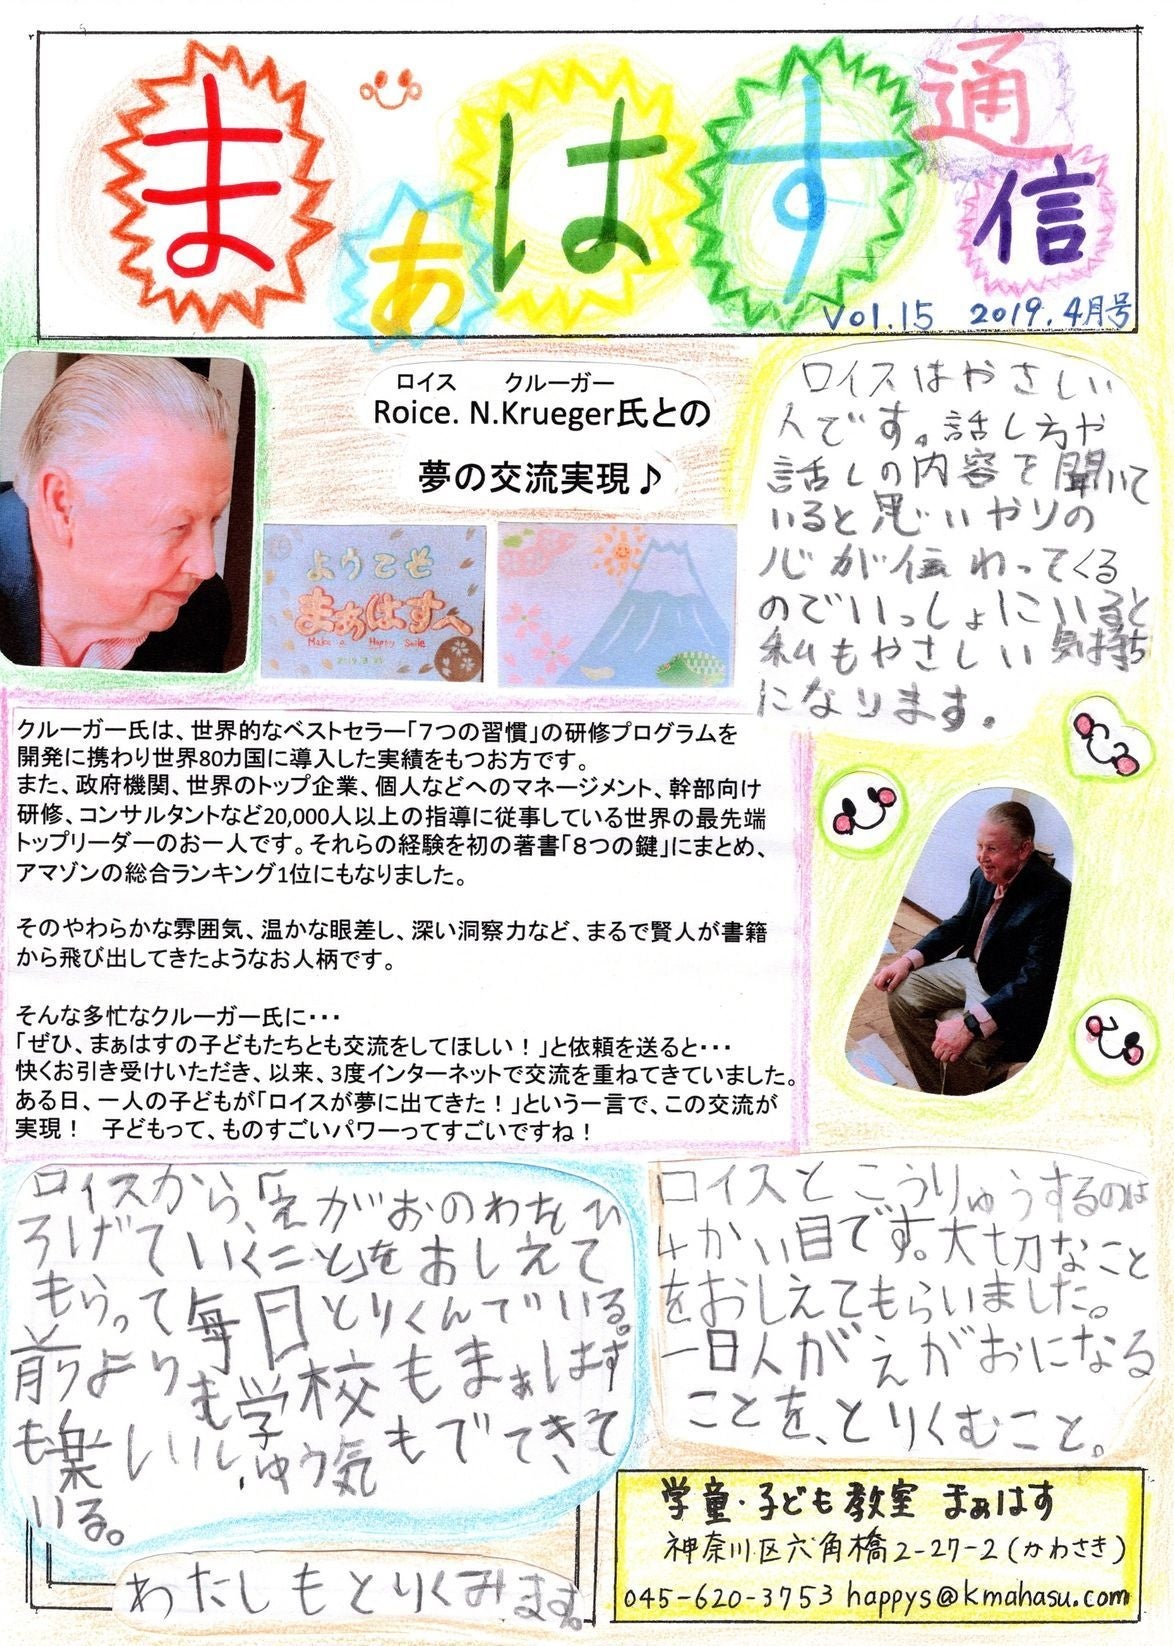 まぁはす通信
Vol.15 2019.4月号
ロイス クルーガー
Roice. N.Krueger氏との
夢の交流実現♪
ようこそ
まぁはすへ
Make a Happy Smile
ロイスはやさしい
人です。話し方や
話しの内容を聞いて
いると思いやりの
心が伝わってくる
のでいっしょにいると
私もやさしい気持ち
になります。
クルーガー氏は、世界的なベストセラー「７つの習慣」の研修プログラムを
開発に携わり世界80カ国に導入した実績をもつお方です。
また、政府機関、世界のトップ企業、個人などへのマネージメント、幹部向け
研修、コンサルタントなど20,000人以上の指導に従事している世界の最先端
トップリーダーのお一人です。それらの経験を初の著書「８つの鍵」にまとめ、
アマゾンの総合ランキング1位にもなりました。
そのやわらかな雰囲気、温かな眼差し、深い洞察力など、まるで賢人が書籍
から飛び出してきたようなお人柄です。
そんな多忙なクルーガー氏に・・・
「ぜひ、まぁはすの子どもたちとも交流をしてほしい！」と依頼を送ると・・・
快くお引き受けいただき、以来、3度インターネットで交流を重ねてきていました。
ある日、一人の子どもが「ロイスが夢に出てきた！」という一言で、この交流が
実現！ 子どもって、ものすごいパワーってすごいですね！
ロイスから、「えがおのわをひ
ろげていくこと」をおしえて
もらって毎日とりくんでいる。
前よりも学校もまぁはす
も楽しいし、ゆう気もでてきて
いる。
わたしもとりくみます。
ロイスとこうりゅうするのは
4かい目です。大切なこと
をおしえてもらいました。
一日人がえがおになる
ことを、とりくむこと。
学童・子ども教室 まぁはす
神奈川区六角橋2-27-2(かわさき)
045-620-3753 happys@kmahasu.com